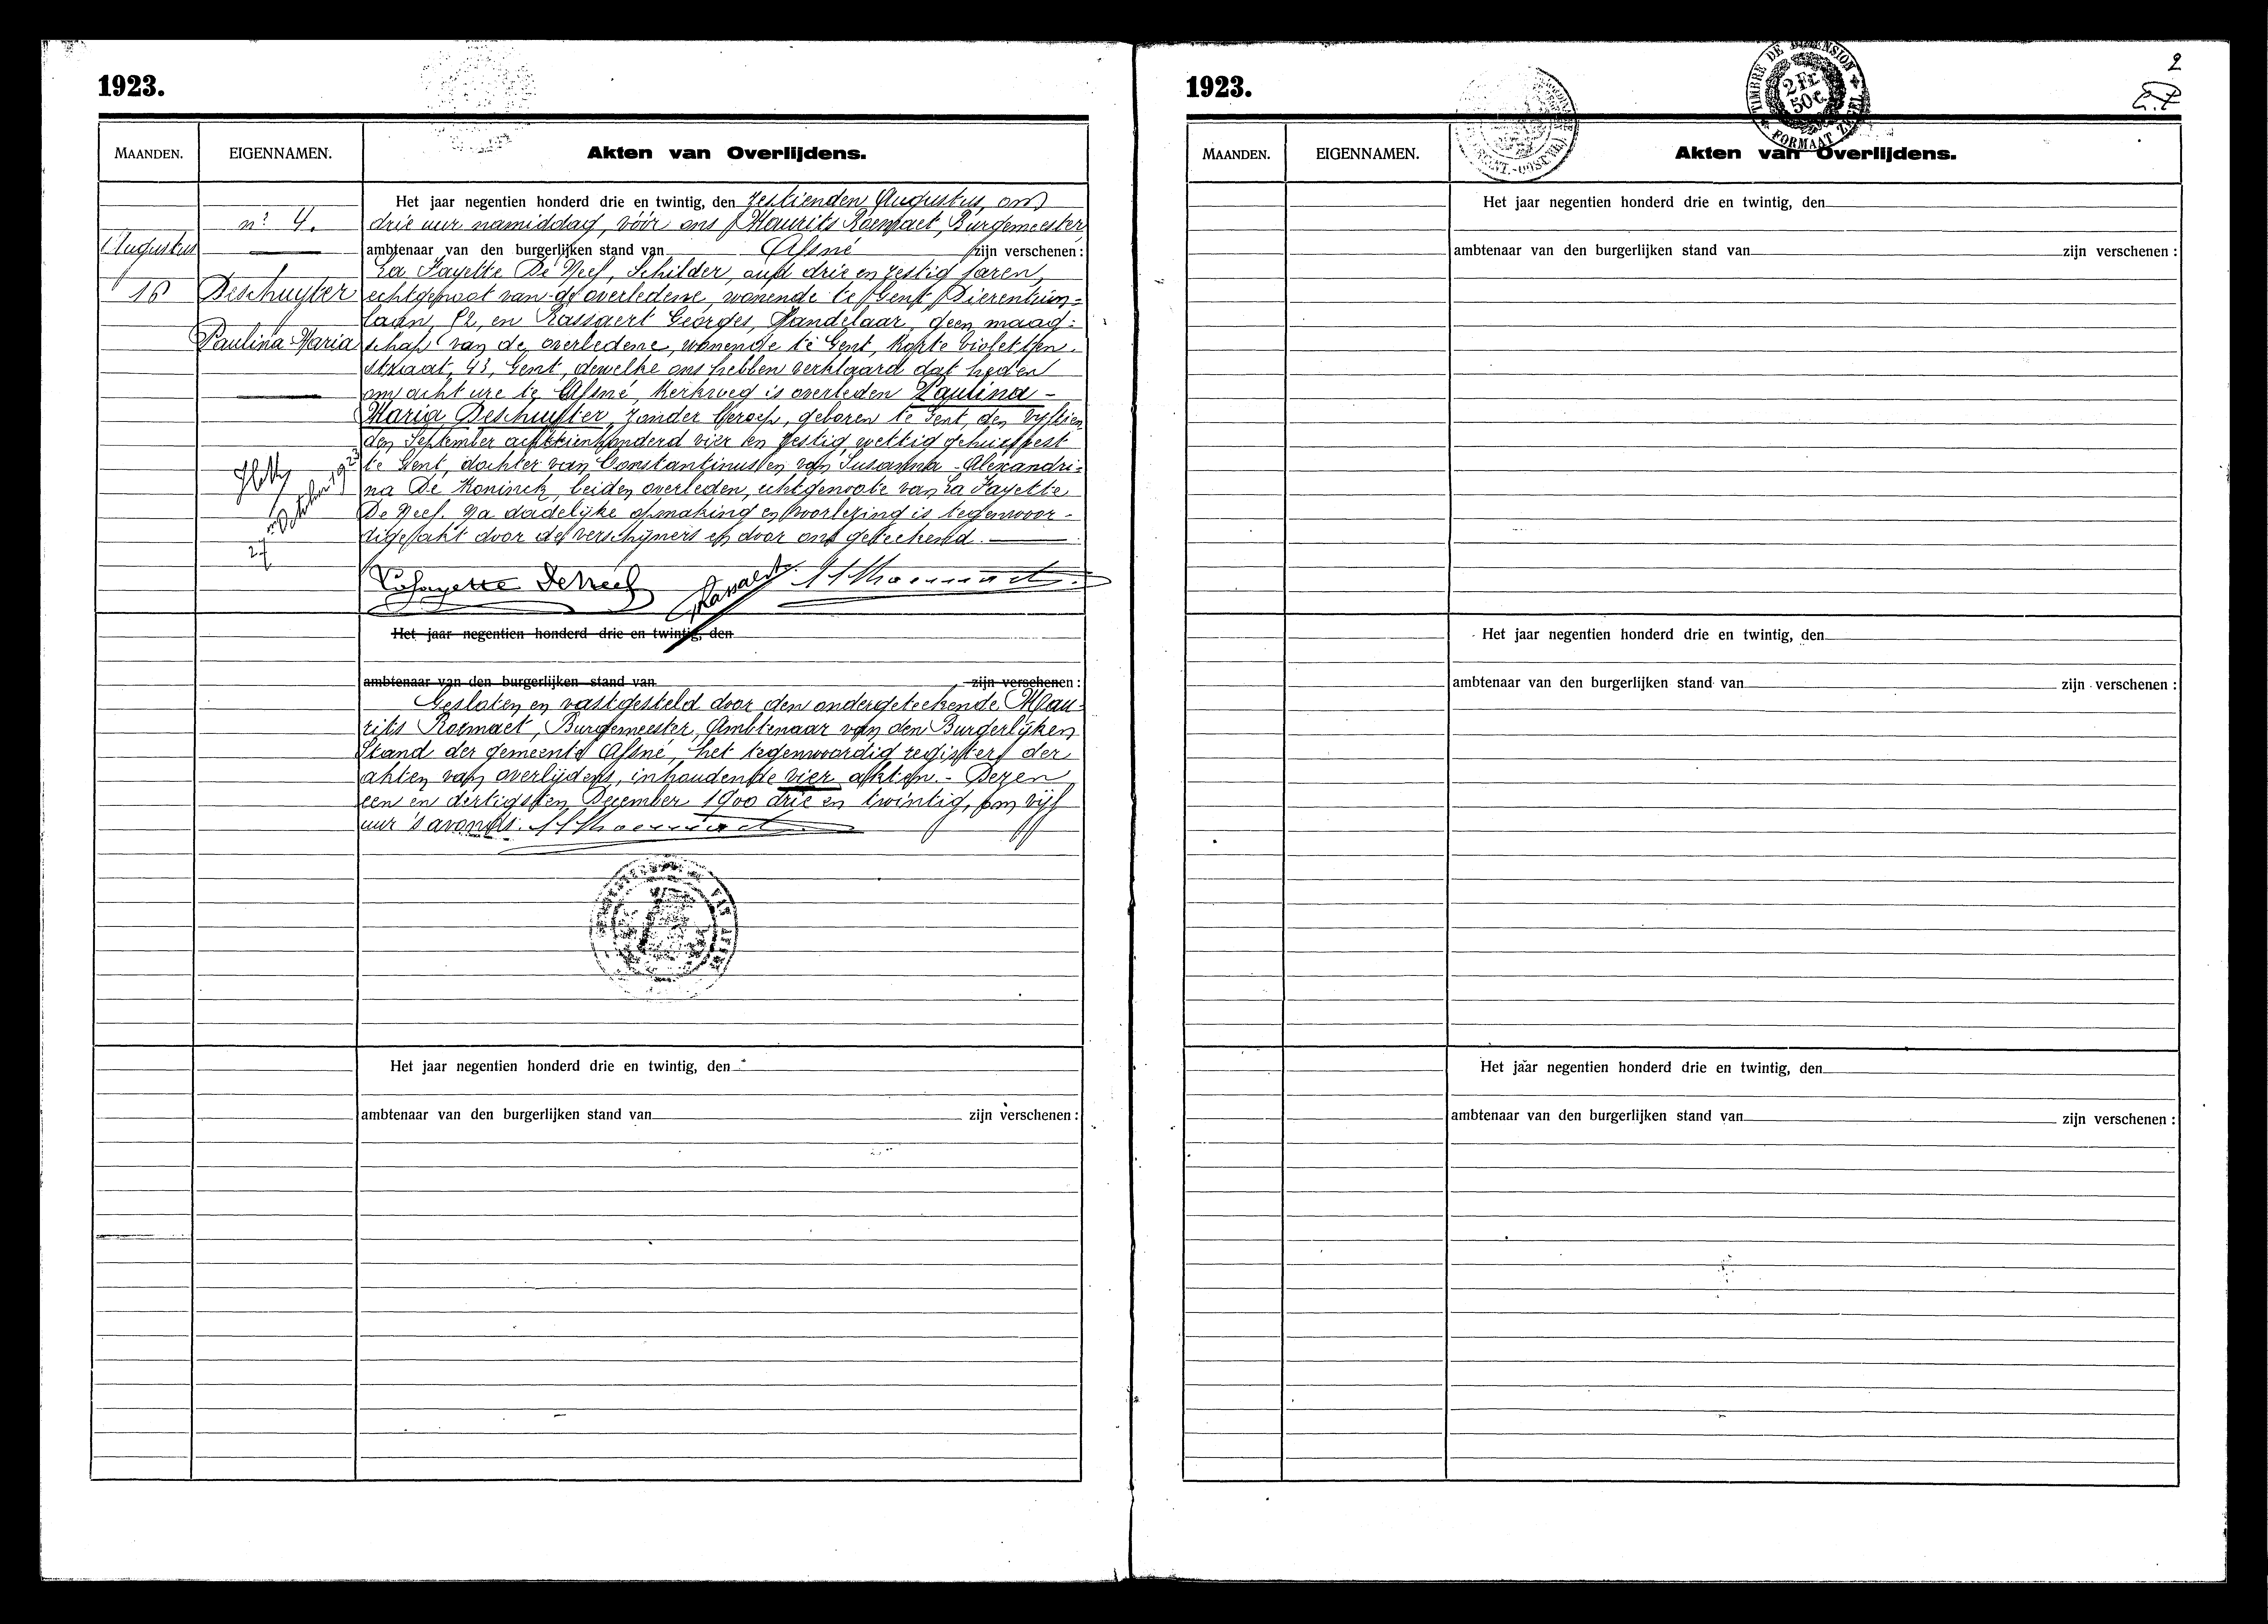 1923.
MAANDEN.
EIGENNAMEN.
Akten van Overlijdens.
n: 4.
Augustus
16
Deschuyter
Paulina-Maria
27 October 1923
Het jaar negentien honderd drie en twintig, den zestienden Augustus, om
drie uur namiddag, vóór ons Maurits Roemaet, Burgemeester
ambtenaar van den burgerlijken stand van Afsné zijn verschenen:
La Fayette De Neef, Schilder, oud drie en zestig jaren,
echtgenoot van de overledene, wonende te Gent Dierentuin=
laan, 82, en Rassaert Georges, Handelaar, geen maag=
schap van de overledene, wonende te Gent, Korte Violetten
straat, 43, Gent, dewelke ons hebben verklaard dat heden
om acht ure te Afsné, Kerkweg is overleden Paulina-
Maria Deschuyter, zonder beroep, geboren te Gent, den vyftien
den September achttienhonderd vier en zestig wettig gehuisvest
te Gent, dochter van Constantinus en van Susanna-Alexandri=
na De Koninck, beiden overleden, echtgenoote van La Fayette
De Neef. Na dadelijke opmaking en voorlezing is tegenwoor-
dige akt door de verschijners en door ons geteekend.
Lafayette DeNeef GRassaert MRoemaet
Het jaar negentien honderd drie en twintig, den
ambtenaar van den burgerlijken stand van zijn verschenen:
Gesloten en vastgesteld door den ondergeteekende Mau-
rits Roemaet, Burgemeester, Ambtenaar van den Burgerlijken
Stand der gemeente Afsné, het tegenwoordig register der
akten van overlijdens, inhoudende vier akten. - Dezen
een en dertigsten December 1900 drie en twintig, om vijf
uur 's avonds. MRoemaet
Het jaar negentien honderd drie en twintig, den
ambtenaar van den burgerlijken stand van zijn verschenen:
1923.
TIMBRE DE DIMENSION
2 Fr.
50 c
FORMAAT ZEGEL
2
MAANDEN.
EIGENNAMEN.
Akten van Overlijdens.
Het jaar negentien honderd drie en twintig, den
ambtenaar van den burgerlijken stand van zijn verschenen:
Het jaar negentien honderd drie en twintig, den
ambtenaar van den burgerlijken stand van zijn verschenen:
Het jaar negentien honderd drie en twintig, den
ambtenaar van den burgerlijken stand van zijn verschenen: